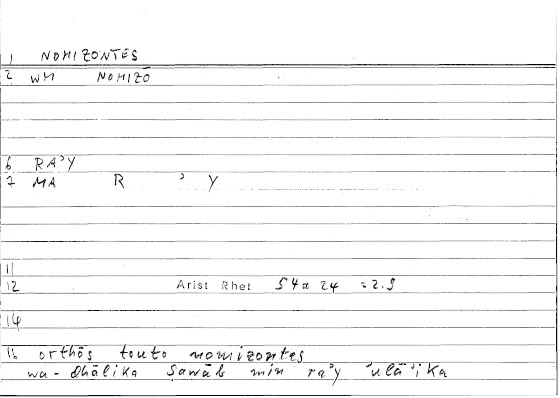 1 NOMIZONTES
2 WM NOMIZŌ
6 RAʾY
7 MA R ʾ Y
11
12 Arist Rhet 54a 24 = 2.9
14
16 orthōs touto nomizontes
wa-dhālika ṣawāb min raʾy ʾulāʾika